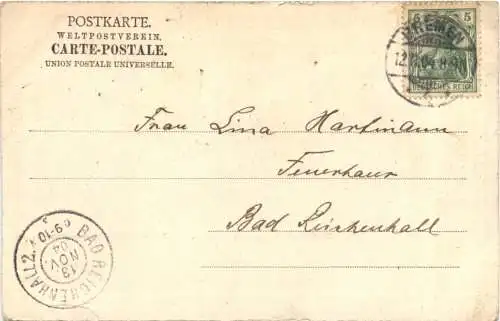 POSTKARTE.
WELTPOSTVEREIN.
CARTE-POSTALE.
UNION POSTALE UNIVERSELLE.
5
DEUTSCHES REICH
BREMEN
Frau Lina Hartmann
Feuerhaus
Bad Reichenhall
BAD REICHENHALL 2.
13
NOV.
04